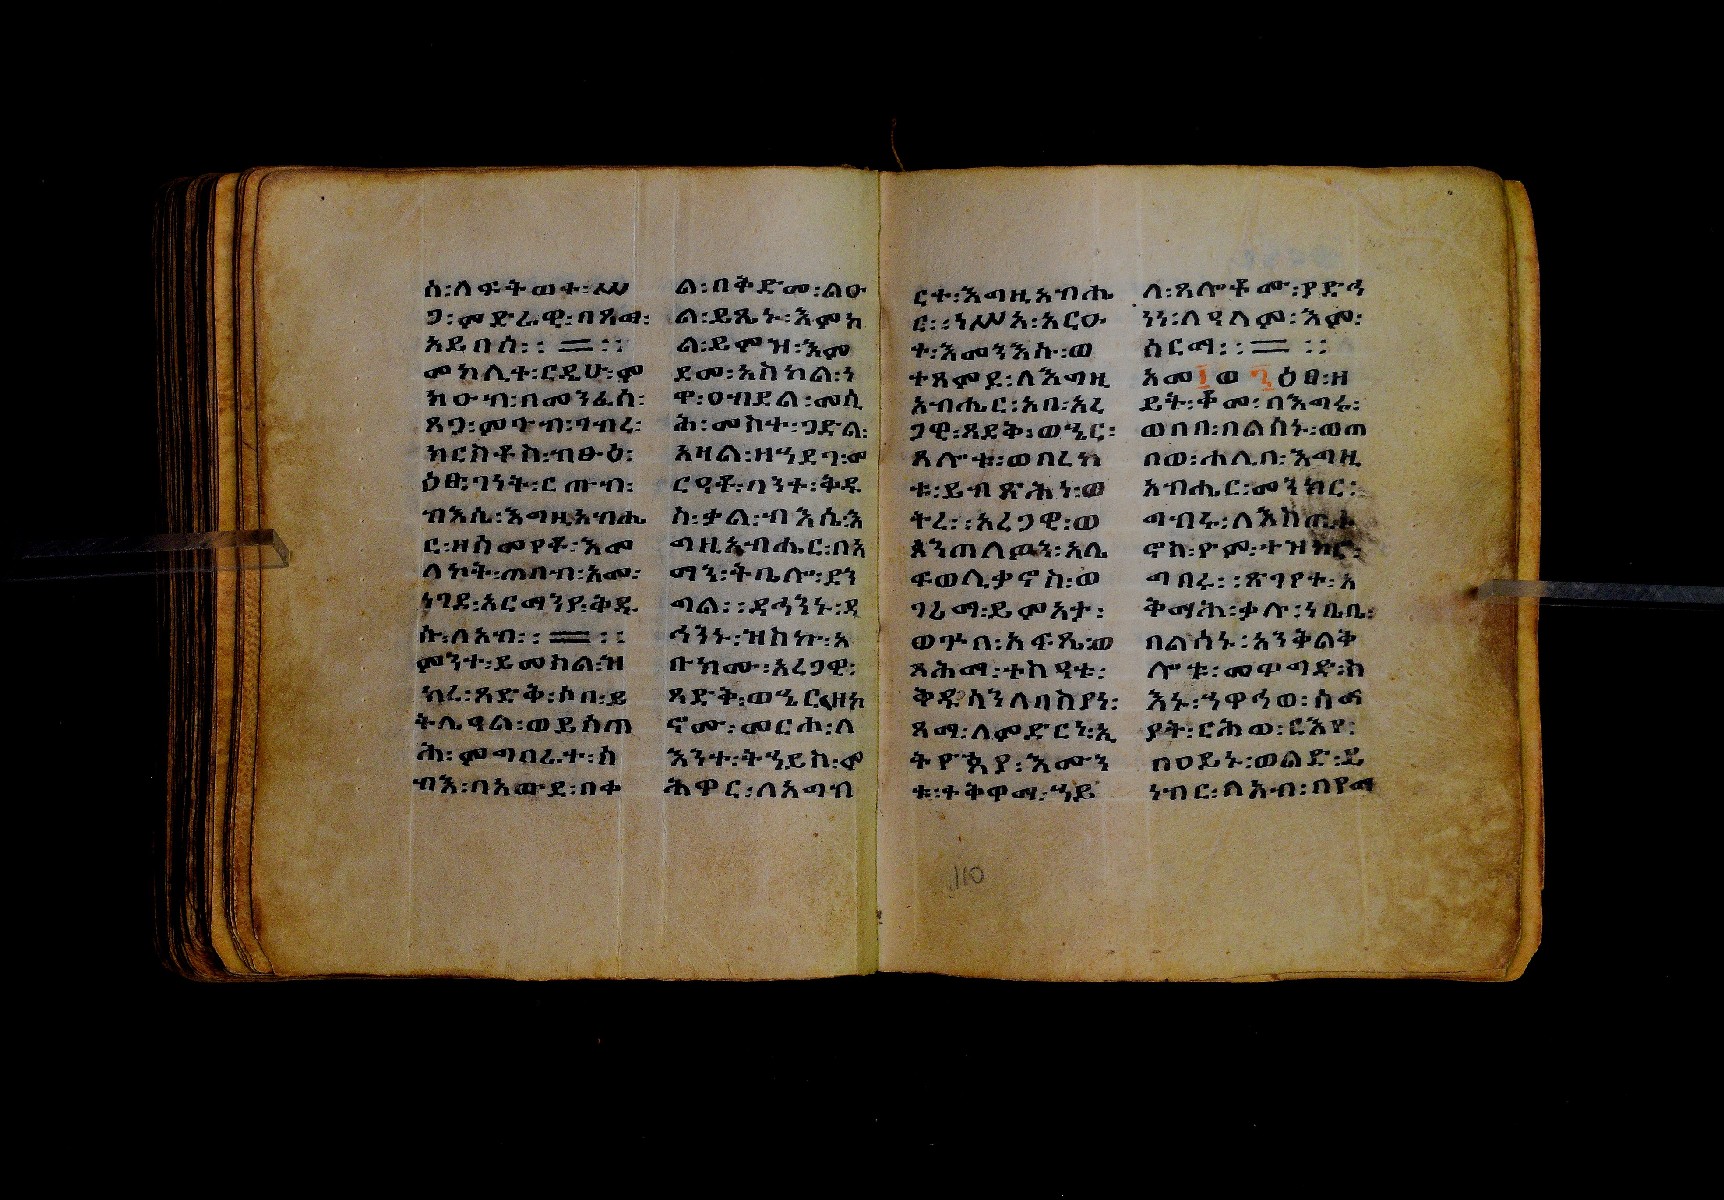 ስ፡ለፍትወተ፡ሥ
ጋ፡ምድራዊ፡በጸጫ፡
አይበስ፡፡ ፡፡
መክሊተ፡ርዲሁ፡ም
ክዑብ፡በመንፈስ፡
ጸጋ፡ምዑብ፡ገብረ፡
ክርስቶስ፡ብፁዕ፡
ዕፀ፡ገነት፡ርጡብ፡
ብእሲ፡እግዚአብሔ
ር፡ዘስመዮቶ፡እመ
ላኮት፡ጠበብ፡አመ፡
ነገደ፡አርማንያ፡ቅዱ
ስ፡ለአብ፡፡ ፡፡
ምንተ፡ይመስል፡ዝ
ክረ፡ጻድቅ፡ሶበ፡ይ
ትሌዓል፡ወይስጠ
ሕ፡ምግበራተ፡ሰ
ብእ፡በአውደ፡በቀ
ል፡በቅድመ፡ልዑ
ል፡ይጼኑ፡እምክ
ል፡ይምዝ፡እም
ደመ፡አስካል፡ነ
ዋ፡ዐብደል፡መሲ
ሕ፡መስተ፡ጋድል፡
አዛል፡ዘኀደገ፡መ
ርዓቶ፡በንተ፡ቅዱ
ስ፡ቃል፡ብእሲ፡እ
ግዚአብሔር፡በአ
ማን፡ትቤሎ፡ደን
ግል፡፡ዳኅንኑ፡ዳ
ኅንኑ፡ዝስኩ፡አ
ቡክሙ፡አረጋዊ፡
ጻድቅ፡ወኄር፡ዘኮ
ኖሙ፡መርሐ፡ለ
እንተ፡ትኀይስ፡ም
ሕዋር፡ለአግብ
ርተ፡እግዚአብሔ
ር፡፡ነሥአ፡አርዑ
ተ፡እመንእሱ፡ወ
ተጸምደ፡ለእግዚ
አብሔር፡አበ፡አረ
ጋዊ፡ጻደቅ፡ወኄር፡
ጸሎቱ፡ወበረከ
ቱ፡ይብጽሕነ፡ወ
ትረ፡፡አረጋዊ፡ወ
ጰንጠለዎን፡አሌ
ፍወሊቃኖስ፡ወ
ገሪማ፡ይመአታ፡
ወጕበ፡አፍጼ፡ወ
ጸሕማ፡ተስዓቱ፡
ቅዱሳንለባስያነ፡
ጸማ፡ለምድርነ፡ኢ
ትዮጵያ፡እሙን
ቱ፡ተቅዋማ፡ኀይ
ለ፡ጸሎቶሙ፡ያድኅ
ነነ፡ለዓለም፡እም፡
ሰርማ፡፡ ፡፡
አመ፩ወ፯ዕፀ፡ዘ
ይት፡ቆመ፡በእግሩ፡
ወበበ፡በልሰኑ፡ወጠ
በወ፡ሐሊበ፡እግዚ
አብሔር፡መንክር፡
ግብሩ፡ለእስጢ
ኖስ፡ዮም፡ተዝካር፡
ግበሩ፡፡ጽጌየተ፡አ
ቅማሕ፡ቃሉ፡ነቢቢ፡
በልሳኑ፡አንቅልቅ
ሎቱ፡መዋግድ፡ከ
እኑ፡ኀዋኅወ፡ሰማ
ያት፡ርሕወ፡ርእየ፡
በዐይኑ፡ወልድ፡ይ
ነብር፡ለአብ፡በየማ
110